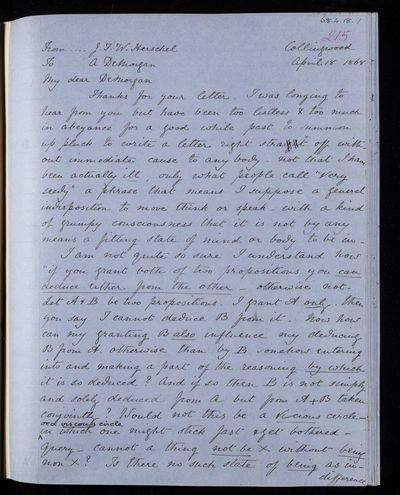 68.4.18.1
215
From .... J. F. W. Herschel Collingwood
To A DeMorgan April 18 1868
My dear DeMorgan
Thanks for your letter. I was longing to
hear from you but have been too listless & too much
in abeyance for a good while past to summon
up pluck to write a letter right straight off with-
out immediate cause to any body. not that I have
been actually ill, only what people call "very
seedy" a phrase that means I suppose a general
indisposition to move think or speak - with a kind
of grumpy consciousness that it is not by any
means a fitting state of mind or body to be in -
I am not quite so sure I understand how
"if you grant both of two propositions you can
deduce either from the other - otherwise not.
Let A + B be two propositions. I grant A only, then
you say I cannot deduce B from it. Now how
can my granting B also influence my deducing
B from A otherwise than by B somehow entering
into and making a part of the reasoning by which
it is so deduced? And if so then B is not simply
and solely deduced from A but from A + B taken
conjointly? Would not this be a vicious circle -
and viscous circle
in which one might stick fast & get bothered -
Query - cannot a thing not be X without being
non X? Is there no such state of being as in-
difference